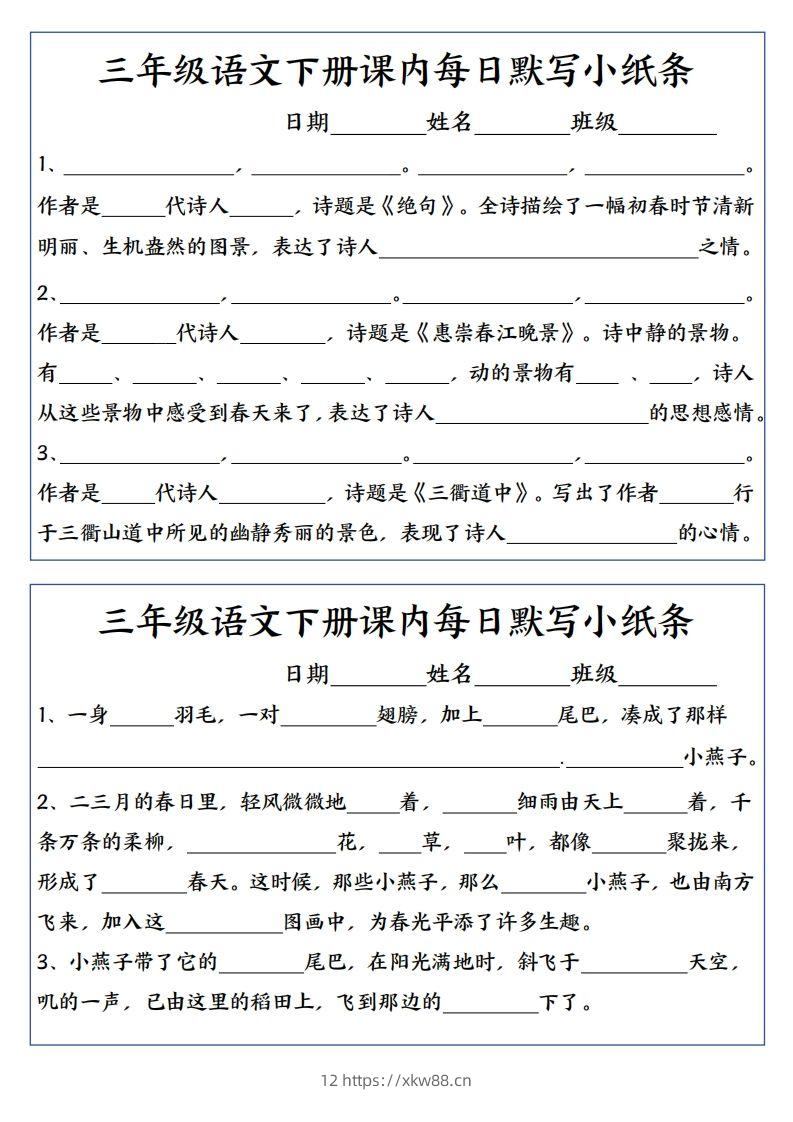 三年级语文下册课内每日默写小纸条
日期________姓名________班级________
1、________________，______________。______________，_______________。
作者是______代诗人______，诗题是《绝句》。全诗描绘了一幅初春时节清新
明丽、生机盎然的图景，表达了诗人______________________________之情。
2、_______________，_______________。________________，_______________。
作者是_______代诗人________，诗题是《惠崇春江晚景》。诗中静的景物。
有_____、______、______、______、______，动的景物有____ 、____，诗人
从这些景物中感受到春天来了，表达了诗人____________________的思想感情。
3、_______________，________________。_______________，_______________。
作者是_____代诗人__________，诗题是《三衢道中》。写出了作者_______行
于三衢山道中所见的幽静秀丽的景色，表现了诗人________________的心情。
三年级语文下册课内每日默写小纸条
日期________姓名________班级________
1、一身______羽毛，一对_________翅膀，加上_______尾巴，凑成了那样
_________________________________________________.___________小燕子。
2、二三月的春日里，轻风微微地_____着，_______细雨由天上______着，千
条万条的柔柳，______________花，____草，____叶，都像_______聚拢来，
形成了________春天。这时候，那些小燕子，那么________小燕子，也由南方
飞来，加入这___________图画中，为春光平添了许多生趣。
3、小燕子带了它的________尾巴，在阳光满地时，斜飞于__________天空，
叽的一声，已由这里的稻田上，飞到那边的_________下了。
12 https://xkw88.cn